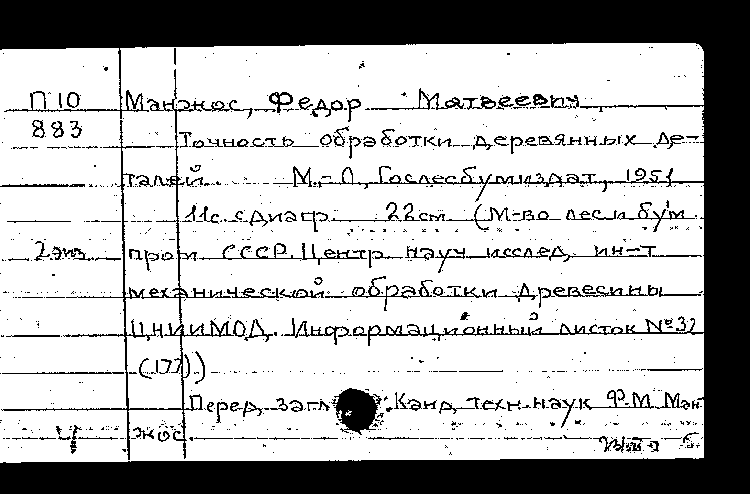 П10 Манжос, Федор Матвеевич,
883 Точность обработки деревянных де-
талей. М.-Л., Гослесбумиздат, 1951
11с. с диагр. 22см. (М-во лес. и бум.
2 экз. пром СССР. Центр. науч исслед. ин-т
механической обработки древесины
ЦНИИМОД. Информационный листок № 32
(177))
Перед. загл.: Канд. техн. наук Ф.М. Ман
Ч жос.